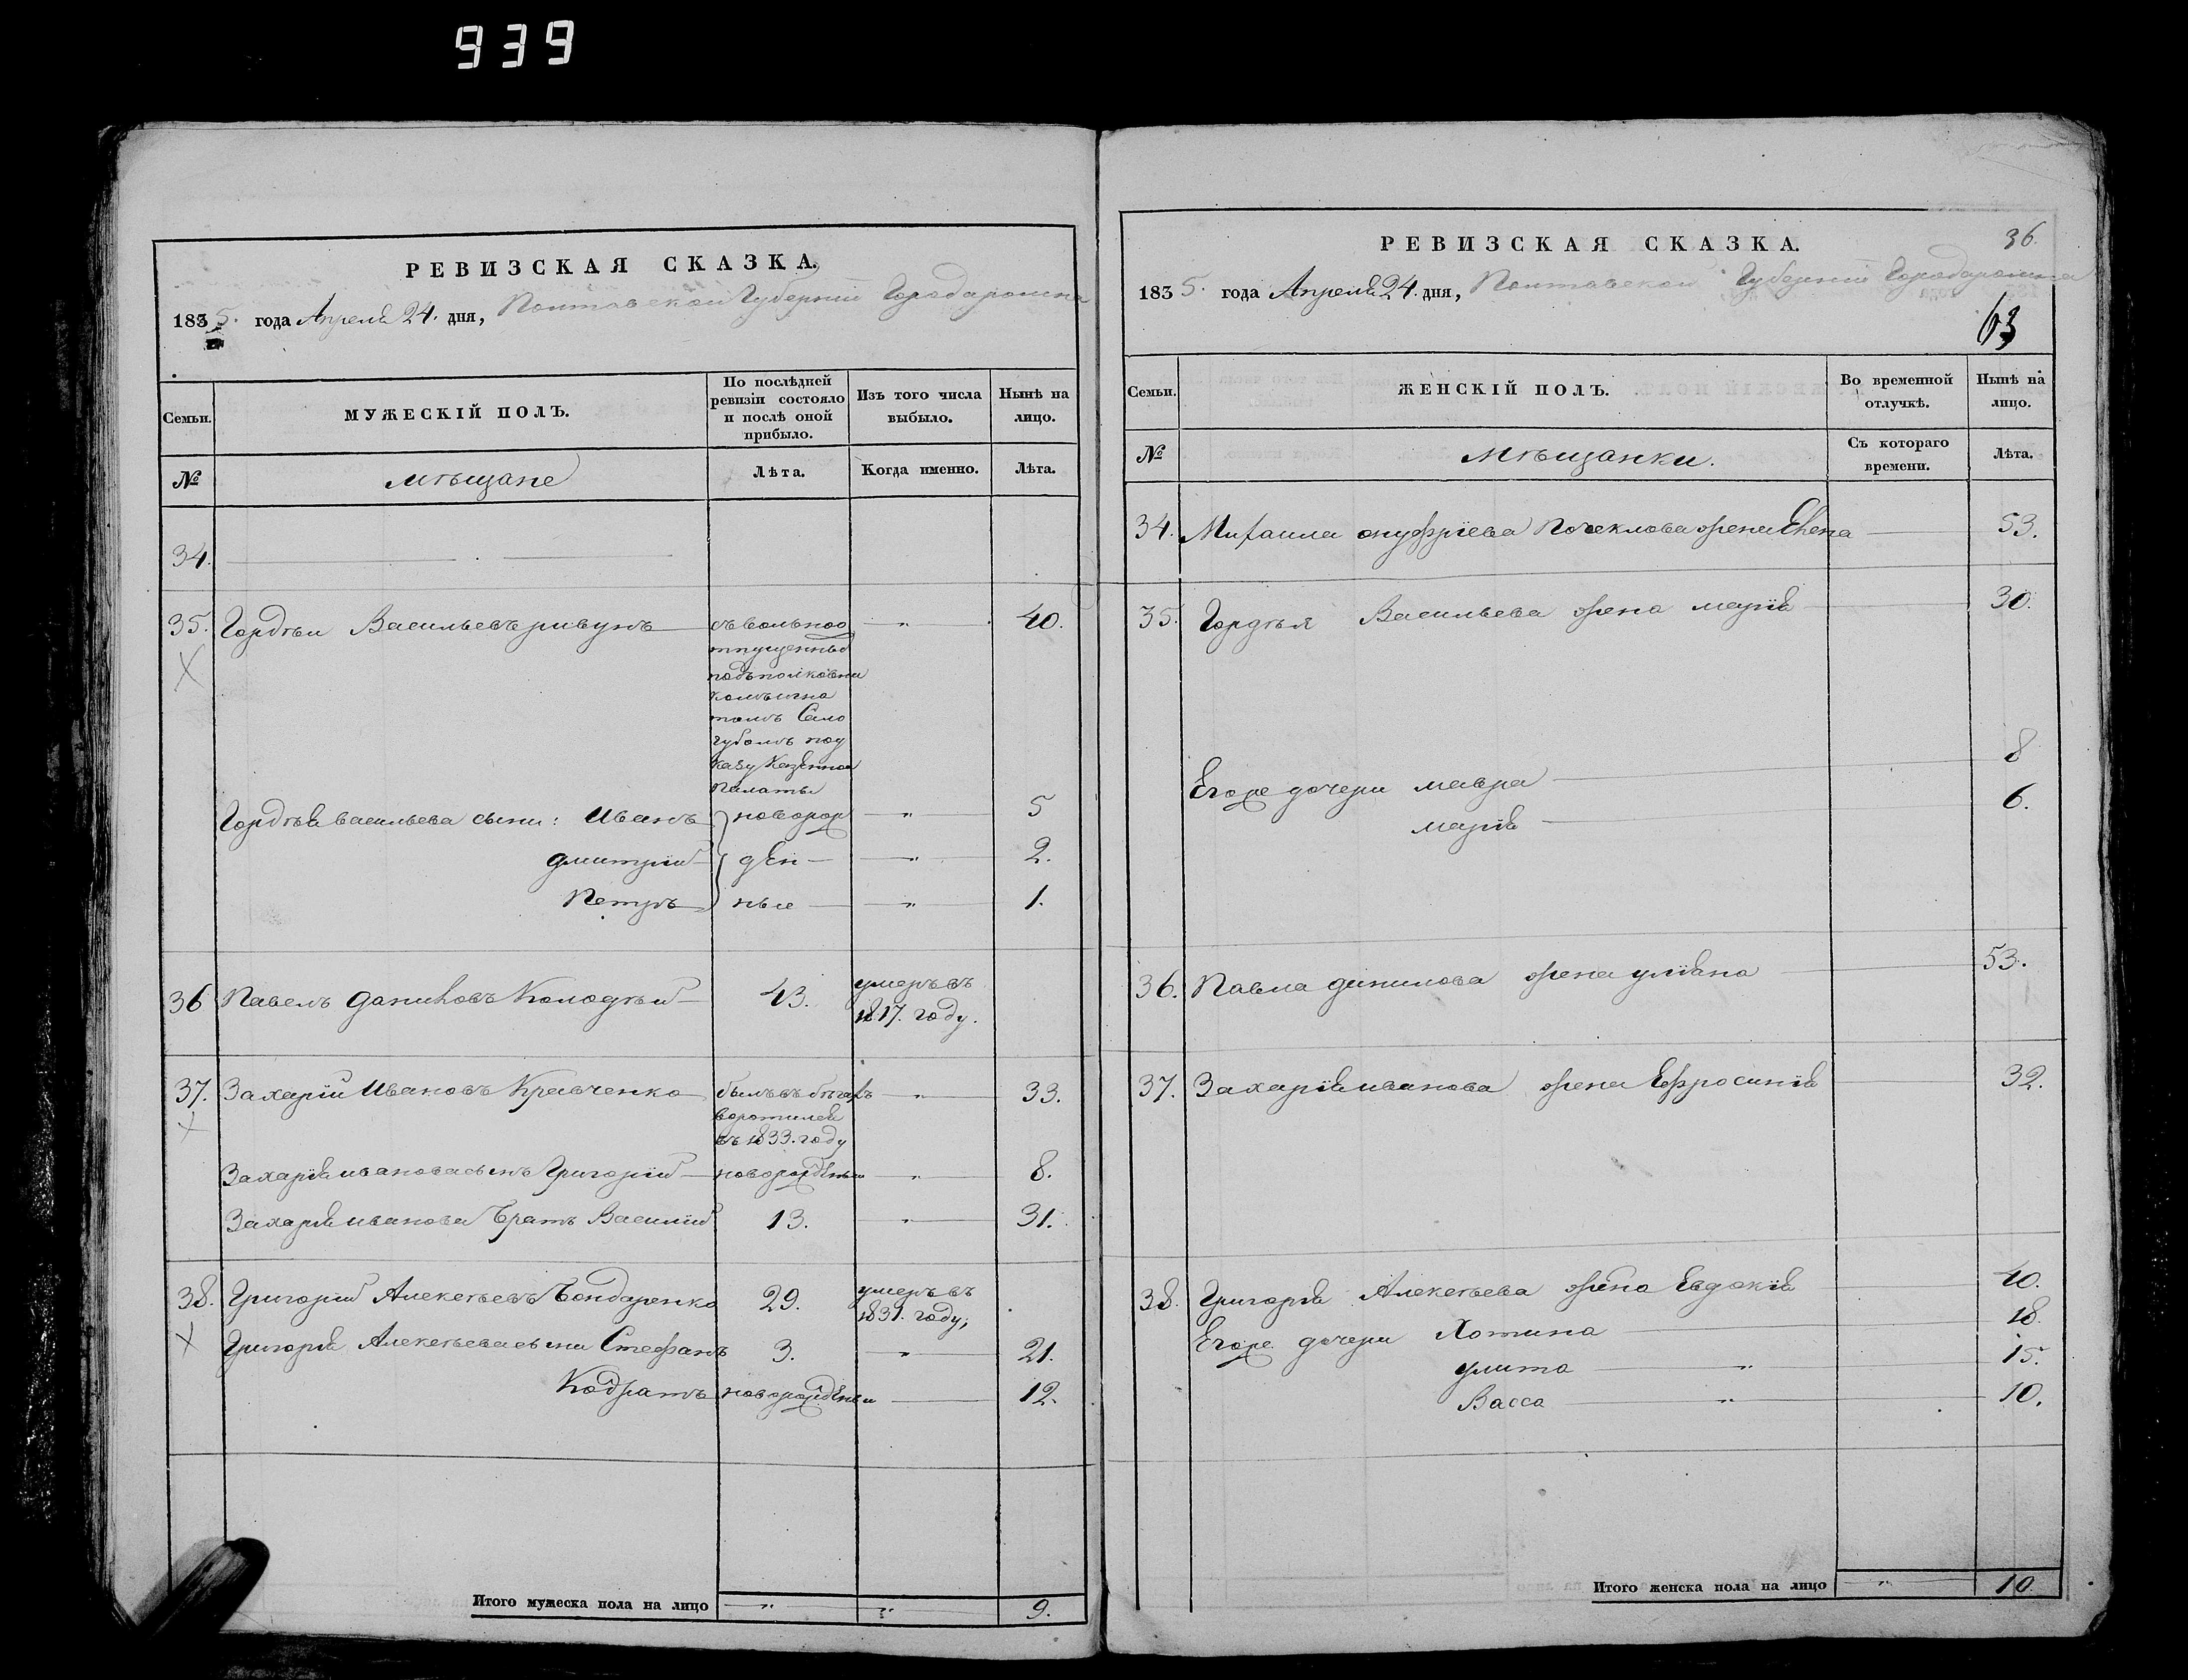 939
РЕВИЗСКАЯ СКАЗКА.
1835. года Апреля 24. дня, Полтавской Губернии Города
Семьи.
МУЖЕСКІЙ ПОЛЪ.
По послѣдней ревизіи состояло и послѣ оной прибыло.
Изъ того числа выбыло.
Нынѣ на лицо.
№
мѣщане
Лѣта.
Когда именно.
Лѣта.
34.
35. Гордѣи Васильевъ 40.
съ вольноо
тпущенныхъ
подъполковни
комъ игна
томъ Сало
губомъ по у
казу Казенной
Палаты
Гордѣя васильева сыни: Иванъ новорож " 5
дмитрій ден " 2.
Петръ ные " 1.
36 Павелъ даниловъ Колодѣй 43. умеръ въ
1817. году.
37. Захарій Ивановъ Кравченко былъ въ бѣгахъ " 33.
воротился
въ 1833. году
Захарія иванова сынъ Григорій новорожденый " 8.
Захарія иванова братъ Василій 13. " 31.
38. Григорій Алексѣевъ Бондаренко 29. умеръ въ
1831. году;
Григорія Алексѣева сыни Стефанъ 3. " 21.
Кодратъ новорожденый 12.
Итого мужеска пола на лицо " " 9.
РЕВИЗСКАЯ СКАЗКА.
36.
1835. года Апреля 24. дня, Полтавской Губерніи Города
63
Семьи.
ЖЕНСКІЙ ПОЛЪ.
Во временной отлучкѣ.
Нынѣ на лицо.
№
мѣщанки.
Съ котораго времени.
Лѣта.
34. Михаила онуфріева жена Елена 53.
35. Гордѣя Васильева жена марія 30.
Егоже дочери мавра 8
марія 6.
36. Павла данилова жена уліяна 53.
37. Захарія иванова жена Ефросинія 32.
38. Григорія Алексѣева жена Евдокія 40.
Егоже дочери Хотина 18.
улита " 15.
Васса " 10.
Итого женска пола на лицо " 10